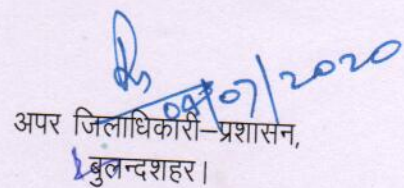 04/07/2020
अपर जिलाधिकारी–प्रशासन,
बुलन्दशहर।